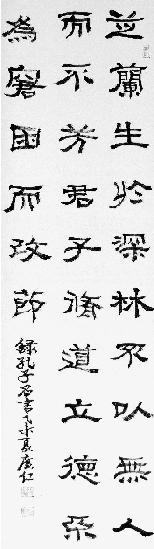 芝蘭生於深林不以無人
而不芳君子修道立德不
為窘困而改節
錄孔子